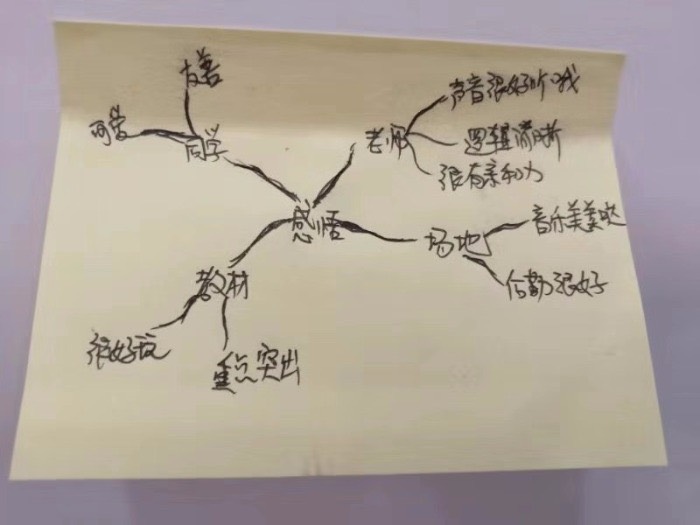 友善
可爱
同学
老师
声音很好听哦
逻辑清晰
很有亲和力
感悟
场地
音乐美美哒
后勤很好
教材
很好玩
重点突出